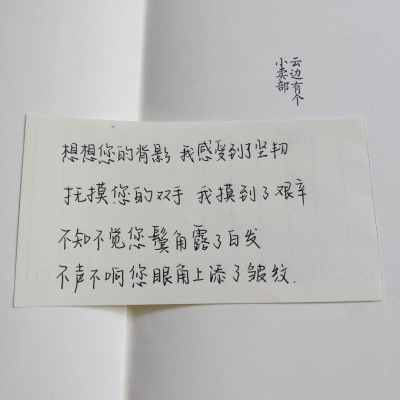 云边有个
小卖部
想想您的背影 我感受到了坚韧
抚摸您的双手 我摸到了艰辛
不知不觉您鬓角露了白发
不声不响您眼角上添了皱纹.